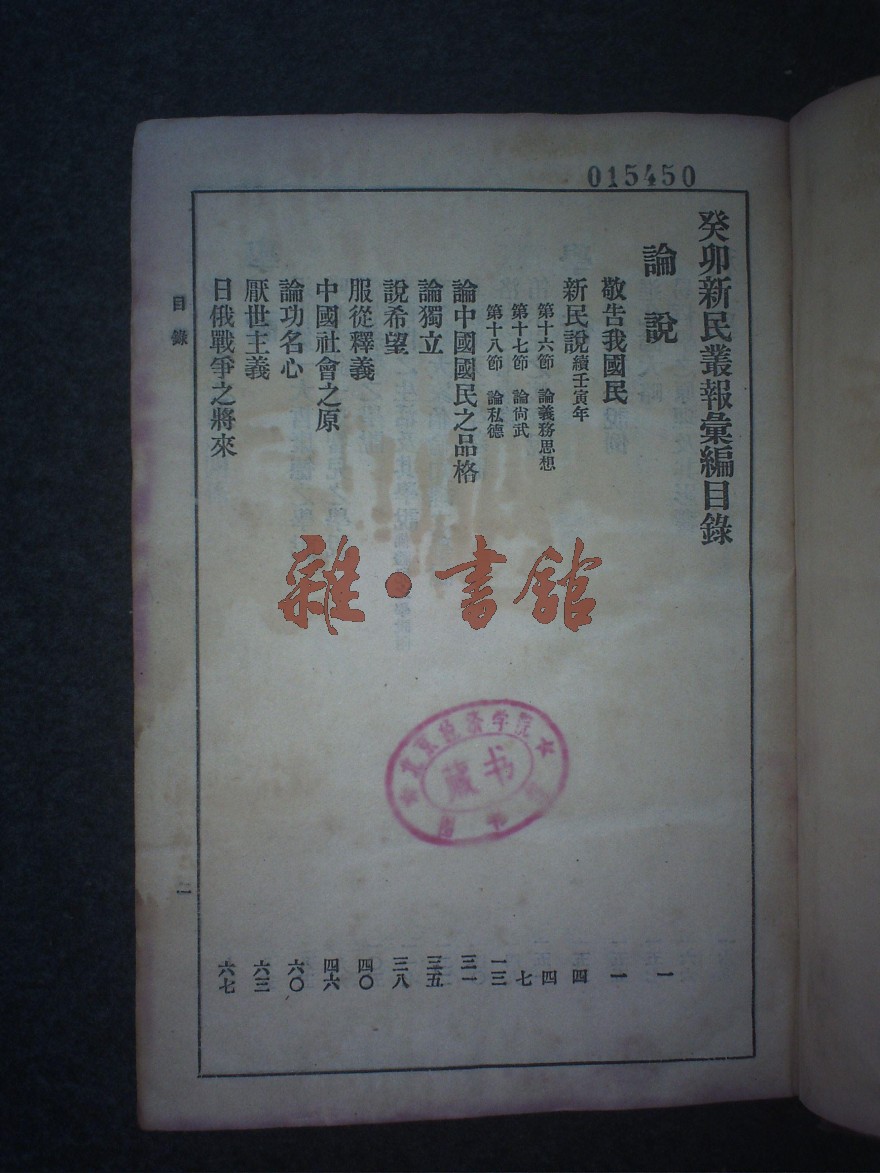 015450
癸卯新民叢報彙編目錄
論說 一
敬告我國民 一
新民說 續壬寅年 四
第十六節 論義務思想 四
第十七節 論尙武 七
第十八節 論私德 一三
論中國國民之品格 三一
論獨立 三五
說希望 三八
服從釋義 四〇
中國社會之原 四六
論功名心 六〇
厭世主義 六三
日俄戰爭之將來 六七
目錄
二
雜·書館
北京经济学院
藏书